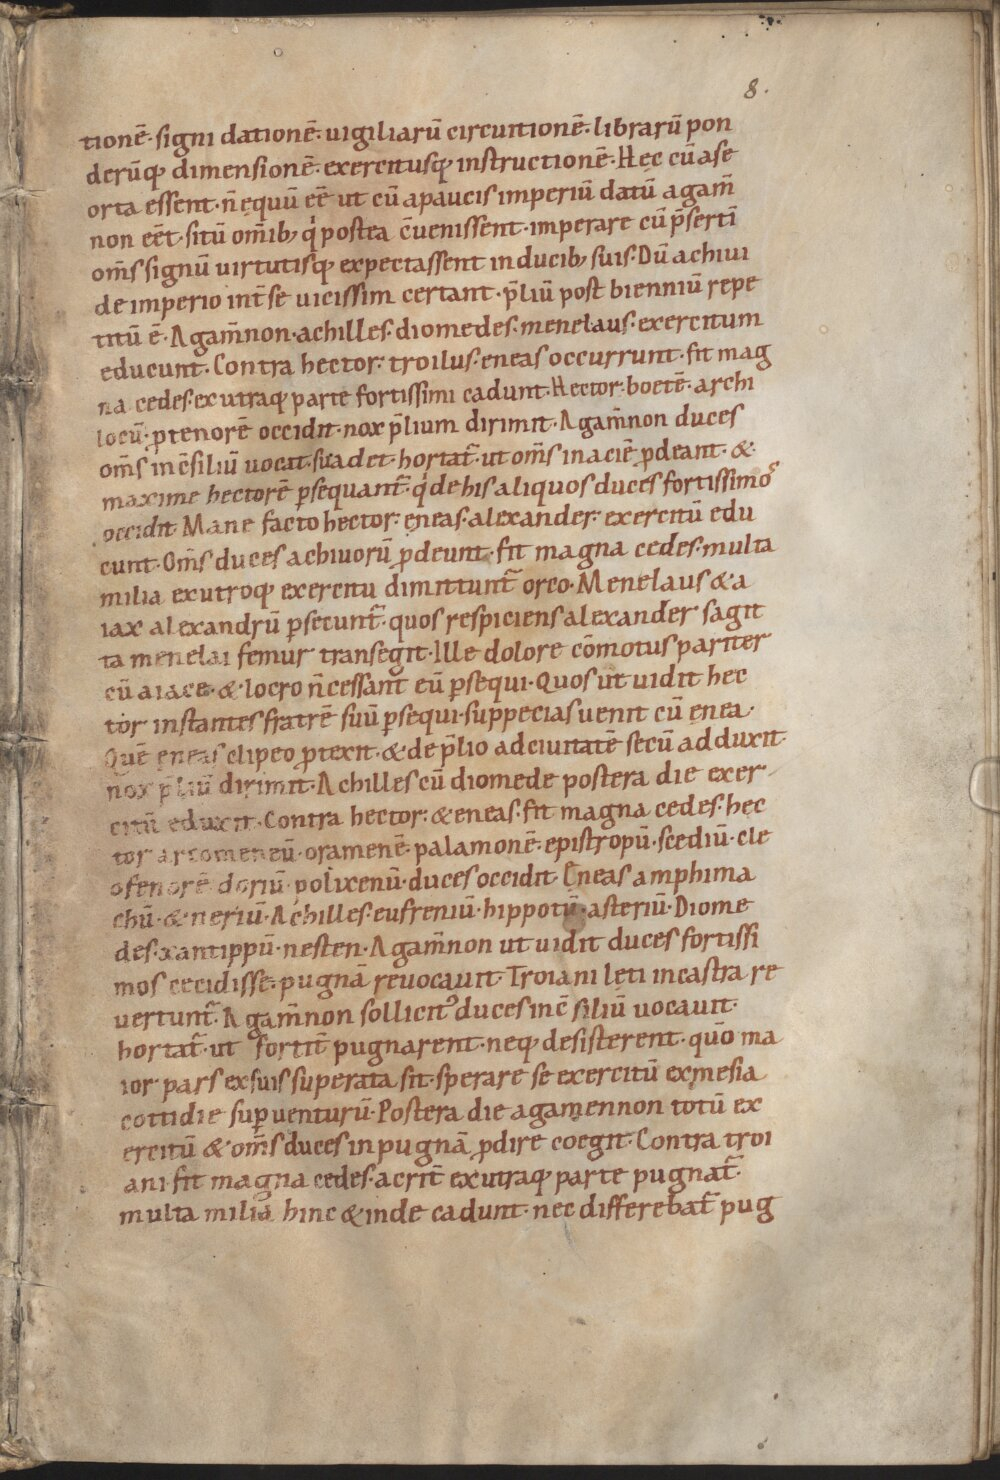 8.
tionē· signi dationē· uigiliarū circuitionē· librarū pon
derūq; dimensionē· exercitusq; instructionē· Hec cū a se
orta essent· n̄ equū eē ut cū a paucis imperiū datū agam̄
non eēt· si tū om̄ib; q́ postea c̄uenissent· imperare cū p̄serti̅
om̄s signū uirtutisq; expectassent in ducib; suis· Dū achiui
de imperio int̄ se uicissim certant· p̄liū post bienniū repe
titū ē· Agam̄non· achilles· diomedes· menelaus· exercitum
educunt· Contra hector· troilus· eneas occurrunt· fit mag
na cedes· ex utraq; parte fortissimi cadunt· Hector· boetē· archi
locū· ꝓtenorē occidit· nox p̄lium dirimit· Agam̄non duces
om̄s in c̄siliū uocat· suadet· hortat᷑· ut om̄s in aciē ꝓdeant· &
maxime hectorē ꝑsequant᷑· q́ de his aliquos duces fortissimoˢ
occidit· Mane facto hector· ęneas· alexander· exercitū edu
cunt· Om̄s duces achiuorū ꝓdeunt· fit magna cedes· multa
milia ex utroq; exercitu dimittunt᷑ orco· Menelaus & a
iax alexandrū ꝑsecunt᷑· quos respiciens alexander sagit
ta menelai femur transegit· Ille dolore cōmotus pariter
cū aiace· & locro n̄ cessant eū ꝑsequi· Quos ut uidit hec
tor instantes fratrē suū ꝑsequi· suppecias uenit cū ęnea·
Quē ęneas clipeo ꝓtexit· & de p̄lio ad ciuitatē secū adduxit·
nox p̄liū dirimit· Achilles cū diomede postera die exer
citū eduxit· Contra hector· & eneas· fit magna cedes· hec
tor arcomeneū· oramenē· palamonē· epistropū· scediū· ele
ofenorē doriū· polixenū· duces occidit· Eneas amphima
chū· & neriū· Achilles· eufreniū· hippotū· asteriū· Diome
des· xantippū· nesten· Agam̄non ut uidit duces fortissi
mos cecidisse· pugnā reuocauit· Troiani lęti in castra re
uertunt᷑· Agam̄non sollicit᷒ duces in c̄siliū uocauit·
hortat᷑· ut fortit̄ pugnarent· neq; desisterent· quō ma
ior pars ex suis superata sit· sperare se exercitū ex męsia
cottidie suꝑuenturū· Postera die agamennon totū ex
ercitū & om̄s duces in pugnā ꝓdire coegit· Contra troi
ani· fit magna cedes· acrit̄ ex utraq; parte pugnat᷑·
multa milia hinc & inde cadunt· nec differebat᷑ pug